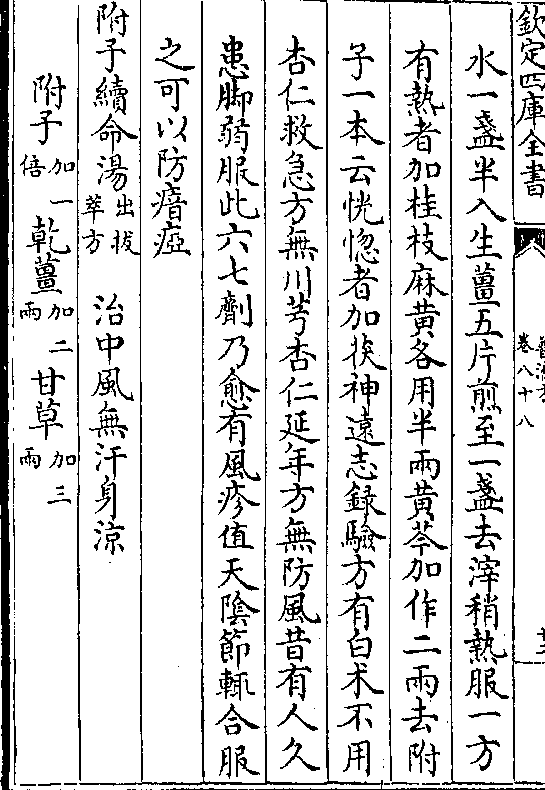 欽定四庫全書
卷八十八
水一盞半入生薑五片煎至一盞去滓稍熱服一方
有熱者加桂枝麻黃各用半兩黃芩加作二兩去附
子一本云恍惚者加茯神遠志録驗方有白术不用
杏仁救急方無川芎杏仁延年方無防風昔有人久
患脚弱服此六七劑乃愈有風疹值天陰節輒合服
之可以防瘖瘂
附子續命湯出拔萃方 治中風無汗身涼
附子加一倍 乾薑加二兩 甘草加三兩